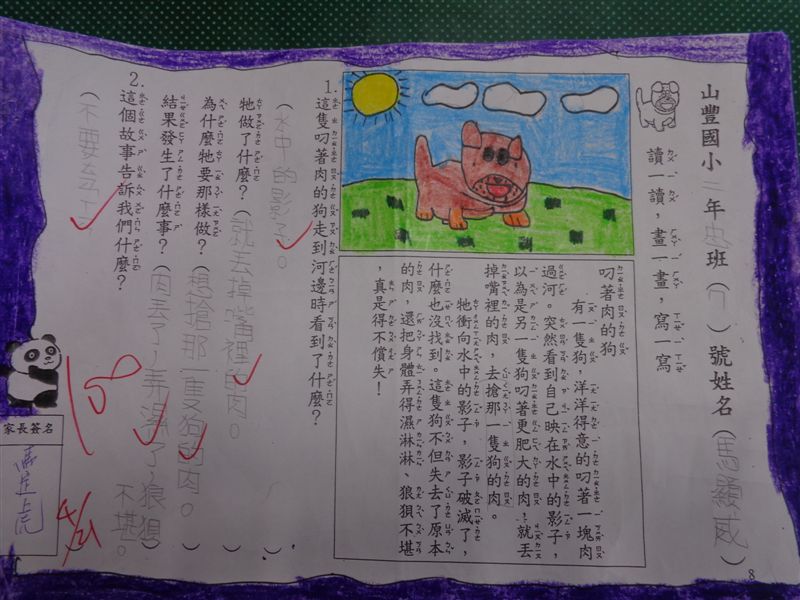 山豐國小二年忠班（ ）號姓名（馬顥威）
讀一讀，畫一畫，寫一寫
叼著肉的狗
有一隻狗，洋洋得意的叼著一塊肉
過河。突然看到自己映在水中的影子，
以為是另一隻狗叼著更肥大的肉，就丟
掉嘴裡的肉，去搶那一隻狗的肉。
牠衝向水中的影子，影子破滅了，
什麼也沒找到。這隻狗不但失去了原本
的肉，還把身體弄得濕淋淋、狼狽不堪
，真是得不償失！
1.這隻叼著肉的狗走到河邊時看到了什麼？
（水中的影子。
牠做了什麼？（就丟掉嘴裡的肉。 ）
為什麼牠要那樣做？（想搶那一隻狗的肉。 ）
結果發生了什麼事？（肉丟了，弄濕了，狼狽不堪。）
2.這個故事告訴我們什麼？
（不要
100
家長簽名
8